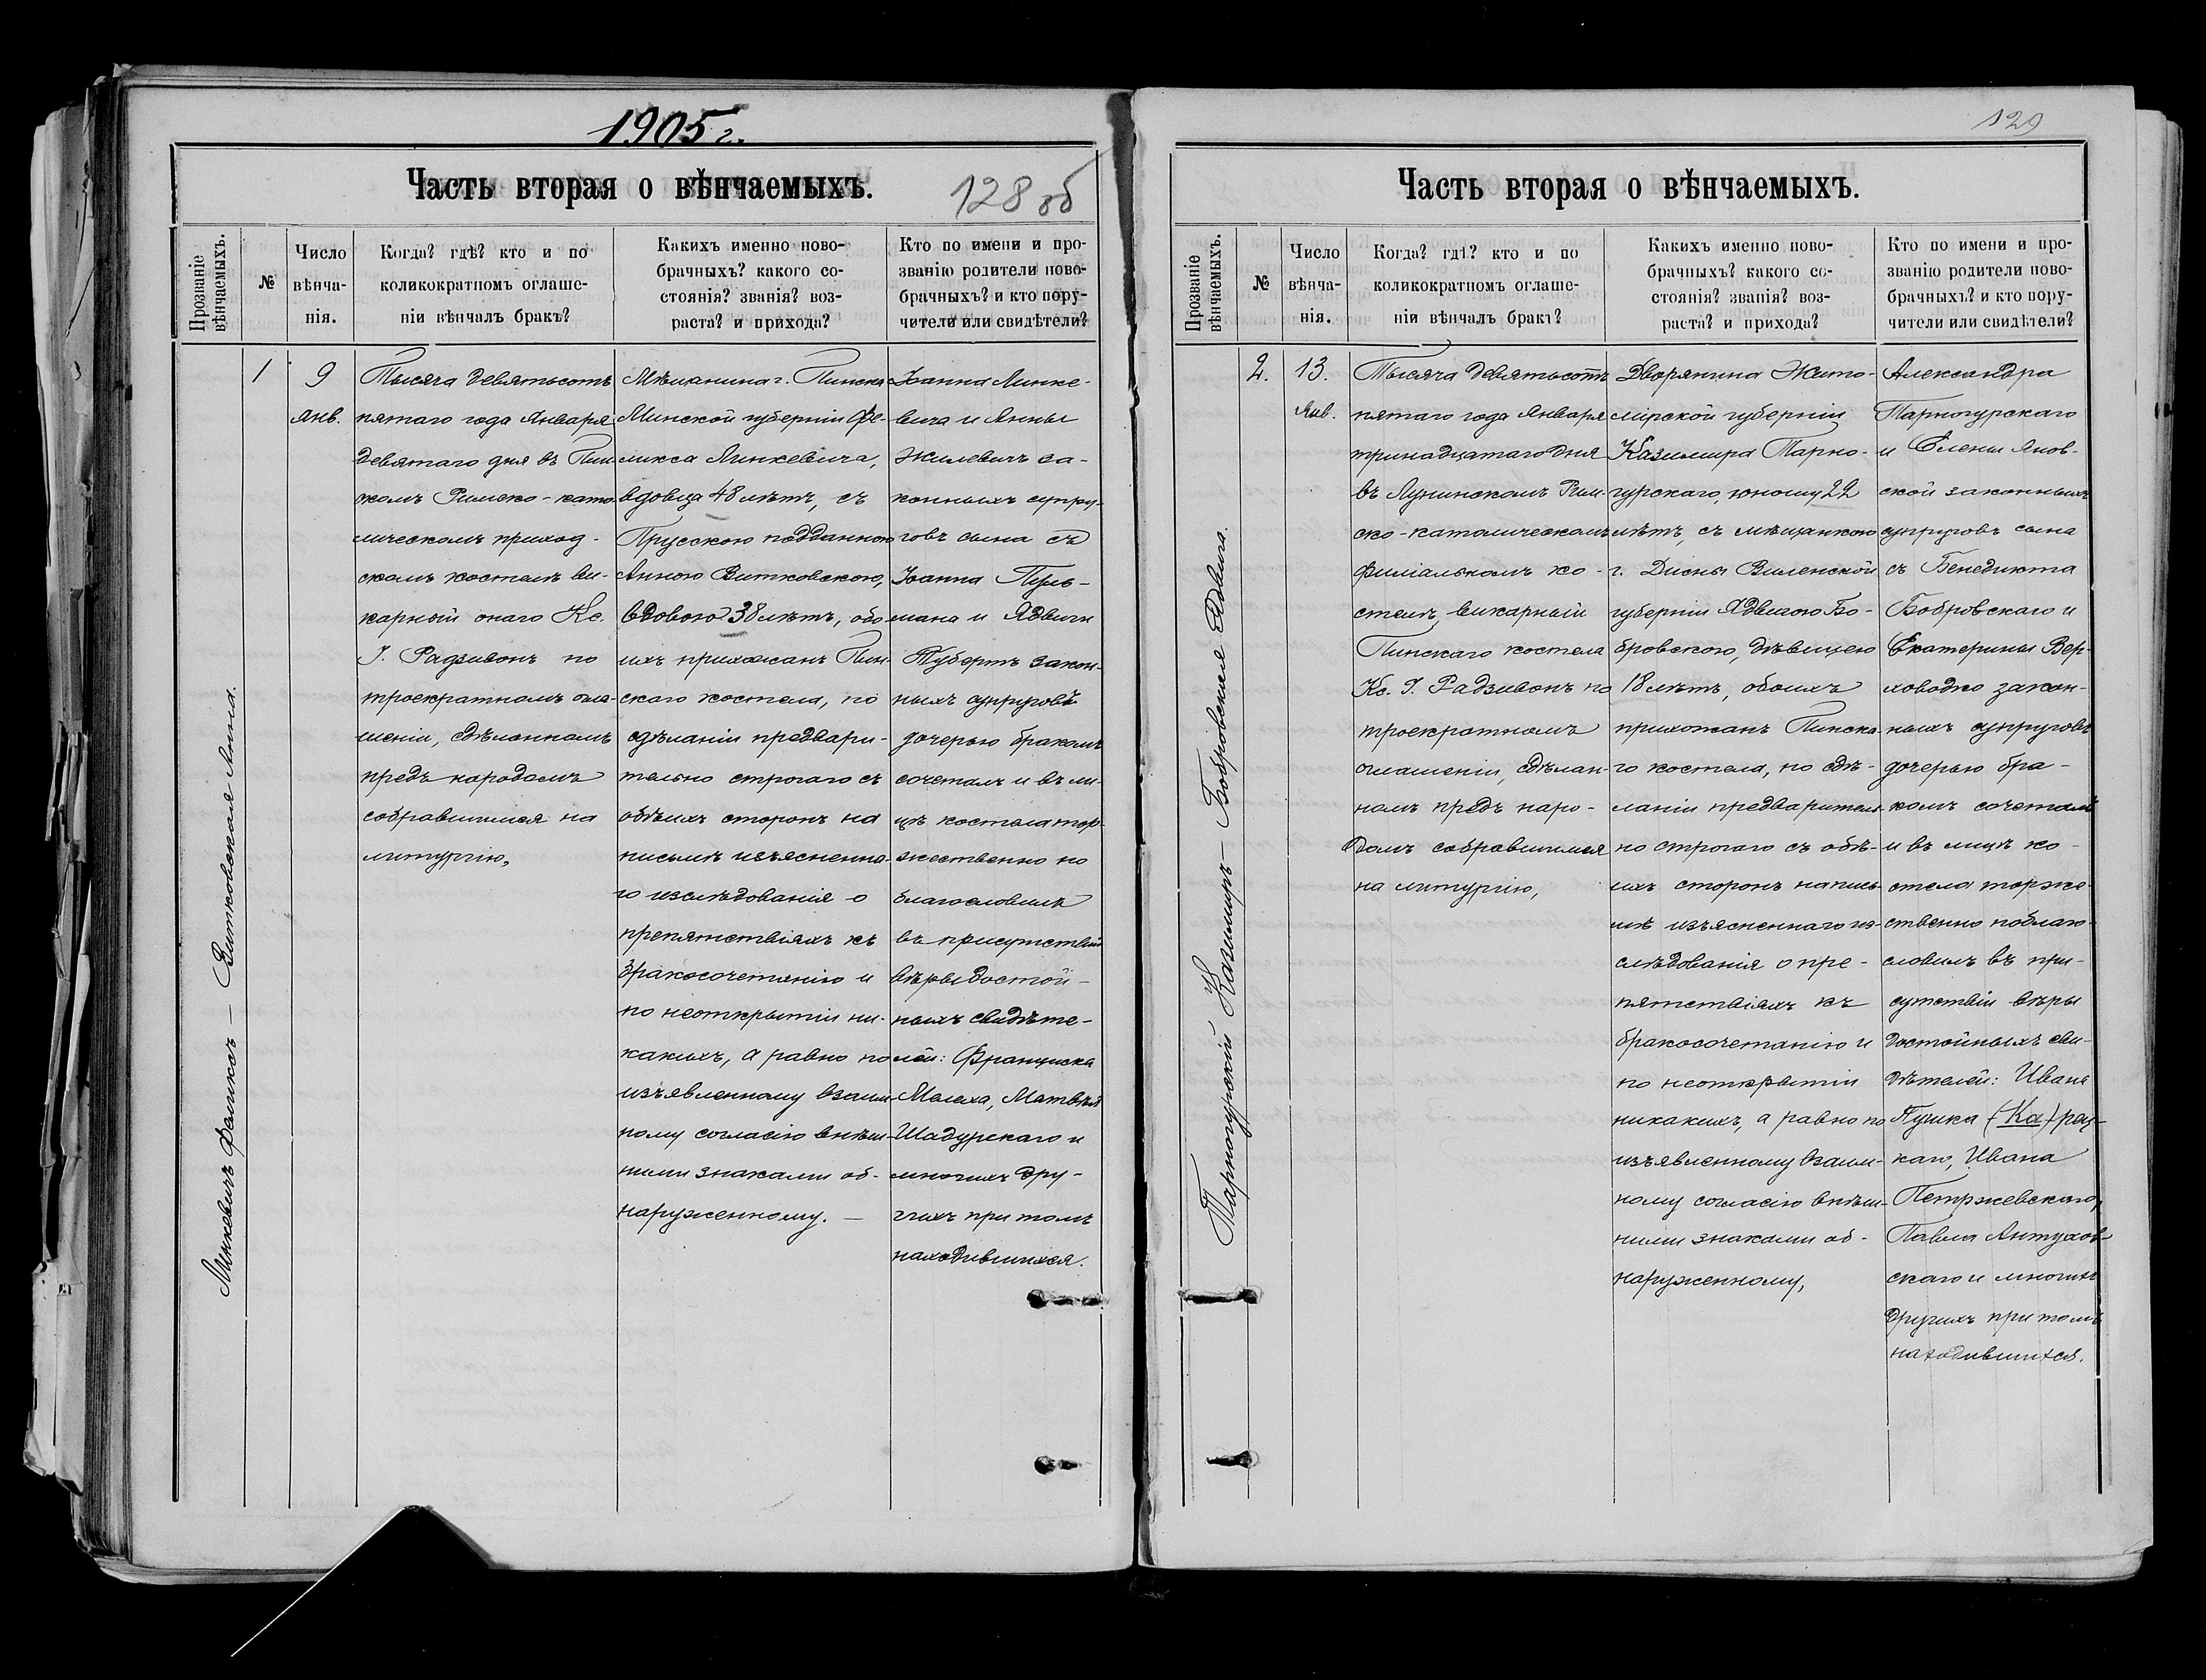 1905 г.
Часть вторая о вѣнчаемыхъ.
128 об
Прозваніе
вѣнчаемыхъ.
№
Число
вѣнча-
нія.
Когда? гдѣ? кто и по
коликократномъ оглаше-
ніи вѣнчалъ бракъ?
Какихъ именно ново-
брачныхъ? какого со-
стоянія? званія? воз-
раста? и прихода?
Кто по имени и про-
званію родители ново-
брачныхъ? и кто пору-
чители или свидѣтели?
Минкевичъ Феликсъ — Витковская Анна.
1
9
янв.
Тысяча девятьсотъ
пятаго года Января
девятаго дня въ Пин-
скомъ Римско-като
лическомъ приход-
скомъ костелѣ ви-
карный онаго Кс.
І. Радзивонъ по
троекратномъ огла-
шеніи, сдѣланномъ
предъ народомъ
собравшимся на
литургію,
Мѣщанина г. Пинска
Минской губерніи Фе-
ликса Минкевича,
вдовца 48 лѣтъ, съ
Прусскою подданною
Анною Витковскою,
вдовою 38 лѣтъ, обо
ихъ прихожанъ Пин-
скаго костела, по
сдѣланіи предвари-
тельно строгаго съ
обѣихъ сторонъ на
письмѣ изъясненна-
го изслѣдованія о
препятствіяхъ къ
бракосочетанію и
по неоткрытіи ни-
какихъ, а равно по
изъявленному взаим-
ному согласію внѣш-
ними знаками об-
наруженному. —
Іоанна Минке-
вича и Анны
Жилевичъ за-
конныхъ супру-
говъ сына съ
Іоанна Пуль-
мана и Ядвиги
Губертъ закон-
ныхъ супруговъ
дочерью бракомъ
сочеталъ и въ ли-
цѣ костела тор-
жественно по
благословилъ
въ присутствіи
вѣры достой-
ныхъ свидѣте-
лей: Франциска
Малаха, Матвѣя
Шадурскаго и
многихъ дру-
гихъ при томъ
находившихся.
129
Часть вторая о вѣнчаемыхъ.
Прозваніе
вѣнчаемыхъ.
№
Число
вѣнча-
нія.
Когда? гдѣ? кто и по
коликократномъ оглаше-
ніи вѣнчалъ бракъ?
Какихъ именно ново-
брачныхъ? какого со-
стоянія? званія? воз-
раста? и прихода?
Кто по имени и про-
званію родители ново-
брачныхъ? и кто пору-
чители или свидѣтели?
Тарногурскій Казимиръ — Бобровская Ядвига.
2.
13.
Янв.
Тысяча девятьсотъ
пятаго года Января
тринадцатаго дня
въ Лунинскомъ Рим-
ско-католическомъ
филіальномъ ко-
стелѣ, викарный
Пинскаго костела
Кс. І. Радзивонъ по
троекратномъ
оглашеніи, сдѣлан-
номъ предъ наро-
домъ собравшимся
на литургію,
Дворянина Жито-
мірской губерніи
Казимира Тарно-
гурскаго, юношу 22
лѣтъ, съ мѣщанкою
г. Дисны Виленской
губерніи Ядвигою Бо-
бровскою, дѣвицею
18 лѣтъ, обоихъ
прихожанъ Пинска-
го костела, по сдѣ-
ланіи предваритель-
но строгаго съ обѣ-
ихъ сторонъ на пись-
мѣ изъясненнаго из-
слѣдованія о пре-
пятствіяхъ къ
бракосочетанію и
по неоткрытіи
никакихъ, а равно по
изъявленному взаим-
ному согласію внѣш-
ними знаками об-
наруженному,
Александра
Тарногурскаго
и Елены Янов-
ской законныхъ
супруговъ сына
съ Бенедикта
Бобровскаго и
Екатерины Вер-
ховодко закон-
ныхъ супруговъ
дочерью бра-
комъ сочеталъ
и въ лицѣ ко-
стела торже-
ственно поблаго-
словилъ въ при-
сутствіи вѣры
достойныхъ сви-
дѣтелей: Ивана
Пушка (Ка) рец-
каго, Ивана
Петржевскаго,
Павла Антухов-
скаго и многихъ
другихъ при томъ
находившихся.